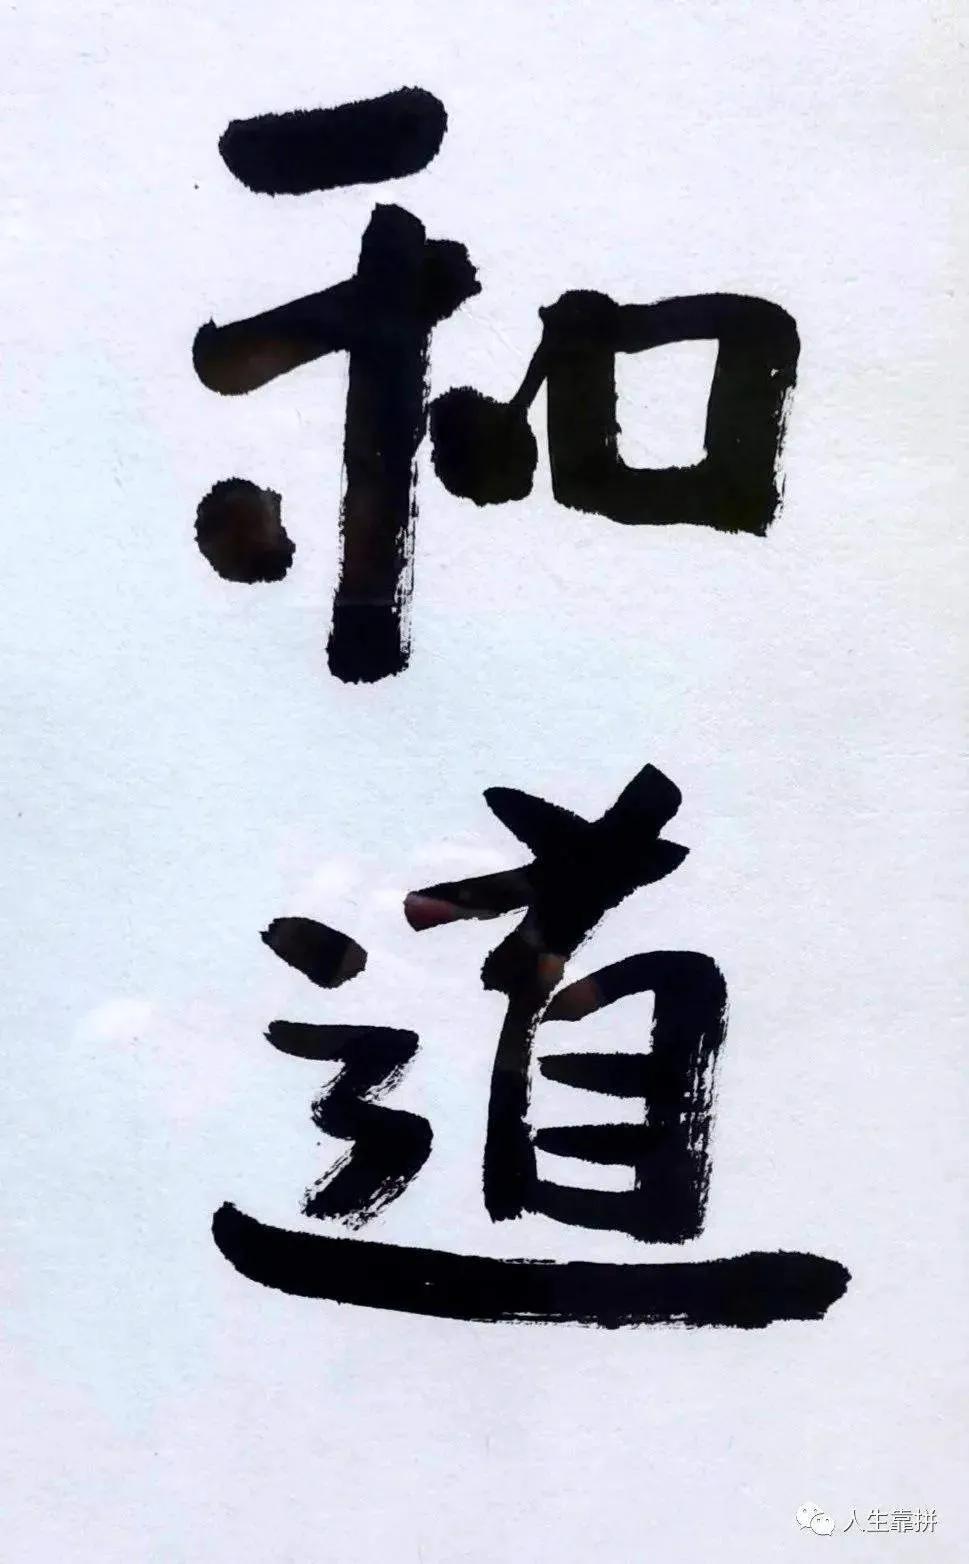 和
道
人生靠拼